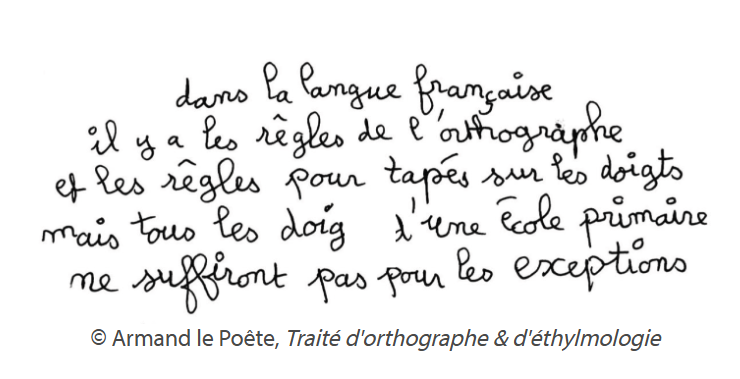 dans la langue française
il y a les rêgles de l'orthographe
et les rêgles pour tapés sur les doigts
mais tous les doig d'une école primaire
ne suffiront pas pour les exceptions
© Armand le Poête, Traité d'orthographe & d'éthylmologie